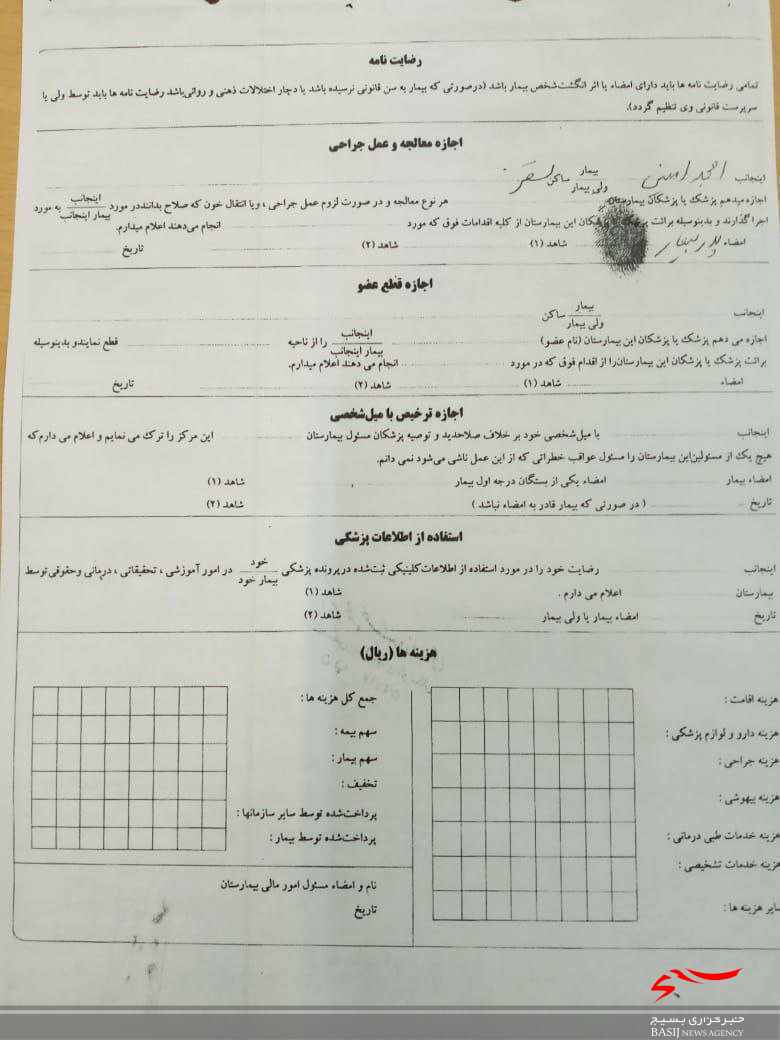 رضایت نامه
تمامی رضایت نامه ها باید دارای امضاء یا اثر انگشت شخص بیمار باشد (درصورتی که بیمار به سن قانونی نرسیده باشد یا دچار اختلالات ذهنی و روانی باشد رضایت نامه ها باید توسط ولی یا
سرپرست قانونی وی تنظیم گردد).
اجازه معالجه و عمل جراحی
اینجانب امجد امینی بیمار / ولی بیمار ساکن سقز
اجازه میدهم پزشک یا پزشکان بیمارستان هر نوع معالجه و در صورت لزوم عمل جراحی ، ویا انتقال خون که صلاح بدانند در مورد اینجانب / بیمار اینجانب به مورد
اجرا گذارند و بدینوسیله برائت پزشکان این بیمارستان از کلیه اقدامات فوق که مورد انجام می‌دهند اعلام میدارم.
امضاء پدر بیمار شاهد (۱) شاهد (۲) تاریخ
اجازه قطع عضو
اینجانب بیمار / ولی بیمار ساکن
اجازه می دهم پزشک یا پزشکان این بیمارستان (نام عضو) اینجانب / بیمار اینجانب را از ناحیه قطع نمایند و بدینوسیله
برائت پزشک یا پزشکان این بیمارستان را از اقدام فوق که در مورد انجام می دهند اعلام میدارم.
امضاء شاهد (۱) شاهد (۲) تاریخ
اجازه ترخیص با میل شخصی
اینجانب با میل شخصی خود بر خلاف صلاحدید و توصیه پزشکان مسئول بیمارستان این مرکز را ترک می نمایم و اعلام می دارم که
هیچ یک از مسئولین این بیمارستان را مسئول عواقب خطراتی که از این عمل ناشی می‌شود نمی دانم.
امضاء بیمار امضاء یکی از بستگان درجه اول بیمار شاهد (۱)
تاریخ ( در صورتی که بیمار قادر به امضاء نباشد ) شاهد (۲)
استفاده از اطلاعات پزشکی
اینجانب رضایت خود را در مورد استفاده از اطلاعات کلینیکی ثبت شده در پرونده پزشکی خود / بیمار خود در امور آموزشی ، تحقیقاتی ، درمانی و حقوقی توسط
بیمارستان اعلام می دارم . شاهد (۱)
تاریخ امضاء بیمار یا ولی بیمار شاهد (۲)
هزینه ها (ریال)
هزینه اقامت :
هزینه دارو و لوازم پزشکی :
هزینه جراحی :
هزینه بیهوشی :
هزینه خدمات طبی درمانی :
هزینه خدمات تشخیصی :
سایر هزینه ها :
جمع کل هزینه ها :
سهم بیمه :
سهم بیمار :
تخفیف :
پرداخت شده توسط سایر سازمانها :
پرداخت شده توسط بیمار :
نام و امضاء مسئول امور مالی بیمارستان
تاریخ
خبرگزاری بسیج
BASIJ NEWS AGENCY